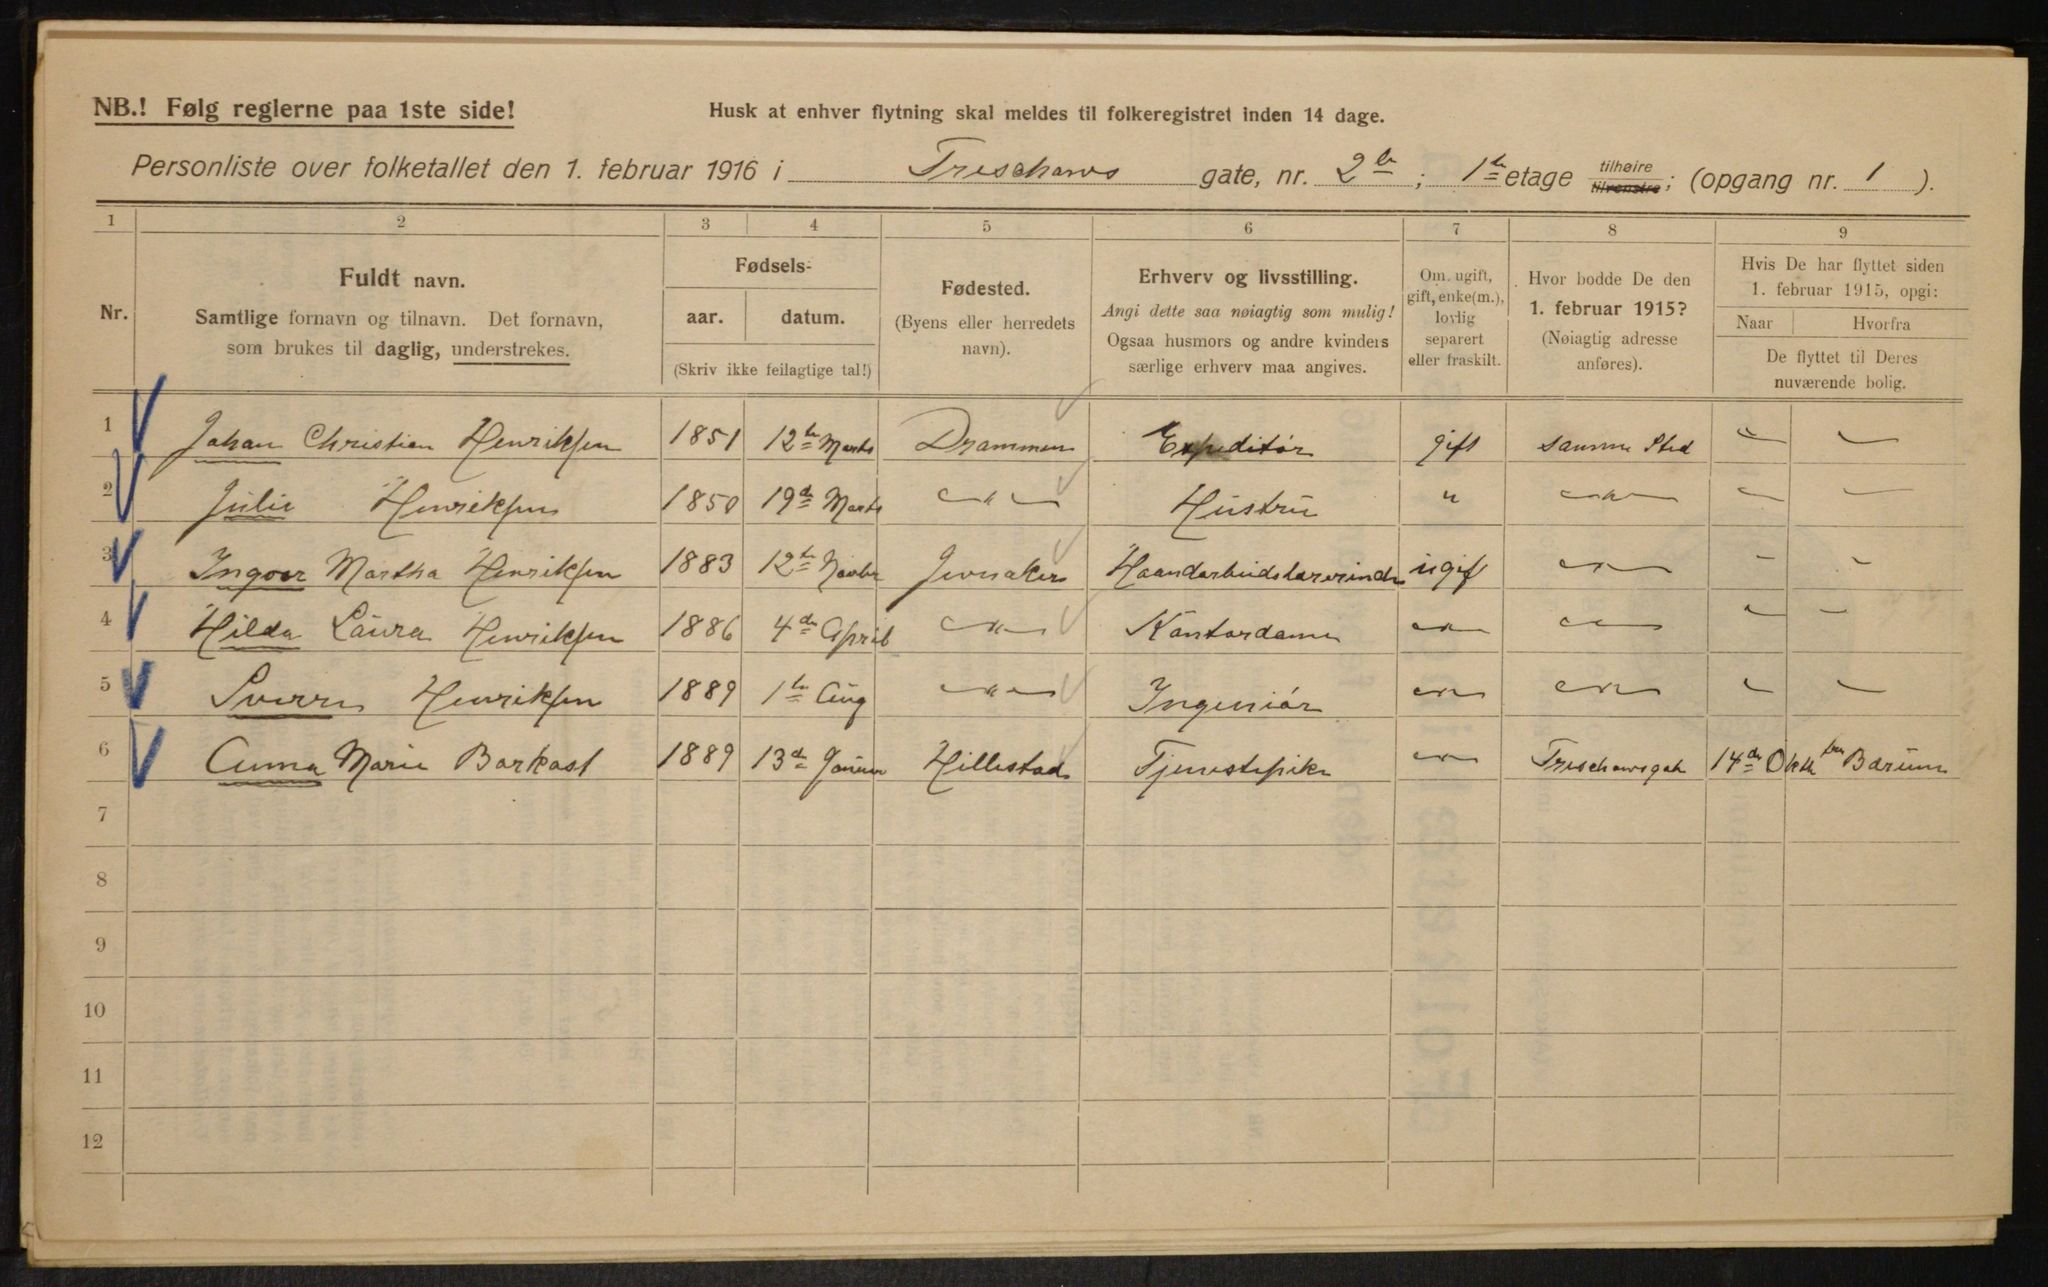 NB.! Følg reglerne paa 1ste side!
Husk at enhver flytning skal meldes til folkeregistret inden 14 dage.
Personliste over folketallet den 1. februar 1916 i Treschows gate, nr. 2 b ; 1ste etage tilhøire tilvenstre; (opgang nr. 1 ).
1 2 3 4 5 6 7 8 9
Nr.
Fuldt navn.
Samtlige fornavn og tilnavn. Det fornavn,
som brukes til daglig, understrekes.
Fødsels-
aar. datum.
(Skriv ikke feilagtige tal!)
Fødested.
(Byens eller herredets
navn).
Erhverv og livsstilling.
Angi dette saa nøiagtig som mulig!
Ogsaa husmors og andre kvinders
særlige erhverv maa angives.
Om ugift,
gift, enke(m.),
lovlig
separert
eller fraskilt.
Hvor bodde De den
1. februar 1915?
(Nøiagtig adresse
anføres).
Hvis De har flyttet siden
1. februar 1915, opgi:
Naar Hvorfra
De flyttet til Deres
nuværende bolig.
1 Johan Christian Henriksen 1851 12te Marts Drammen Expeditör gift samme Sted " "
2 Julie Henriksen 1850 19de Marts " Hustru " " " "
3 Ingvor Martha Henriksen 1883 12te Novbr Jevnaker Haandarbeidslærerinde ugift " " "
4 Hilda Laura Henriksen 1886 4de April " Kontordame " " " "
5 Sverre Henriksen 1889 1ste Aug " Ingeniör " " " "
6 Anna Marie Barkost 1889 13de Januar Hillestad Tjenestepike " Treschowsgate 14de Oktb fra Bærum
7
8
9
10
11
12